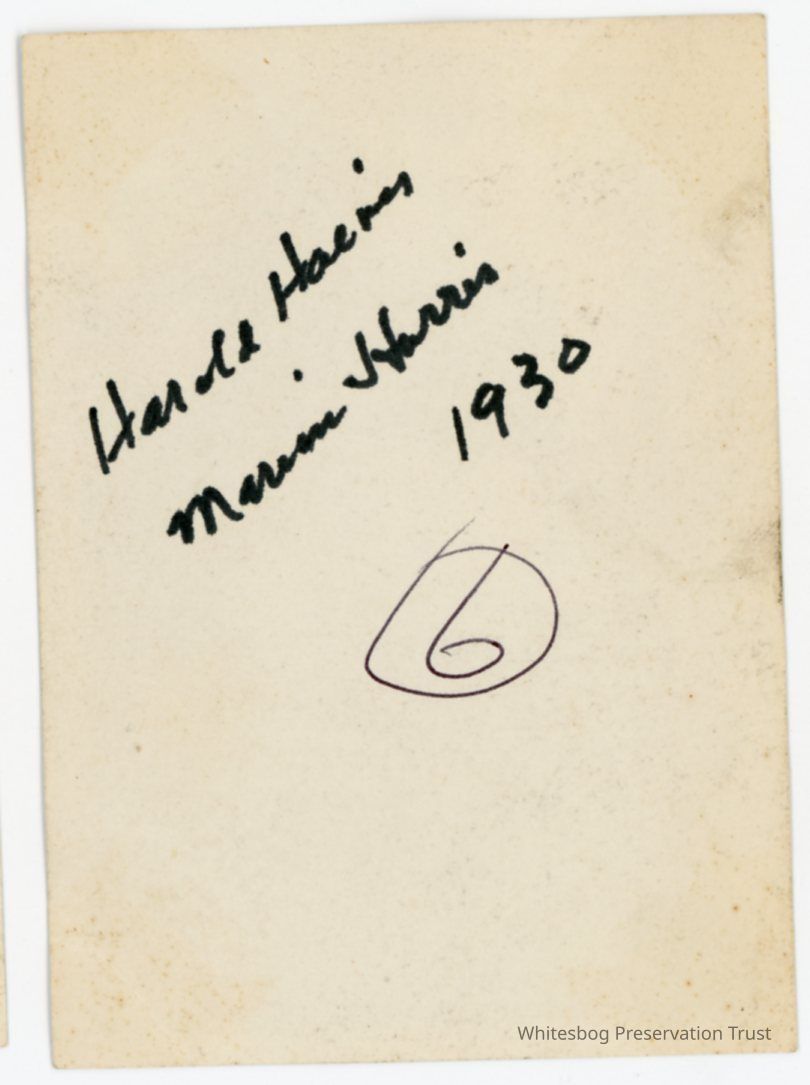 Harold Haines
Harris
1930
6
Whitesbog Preservation Trust